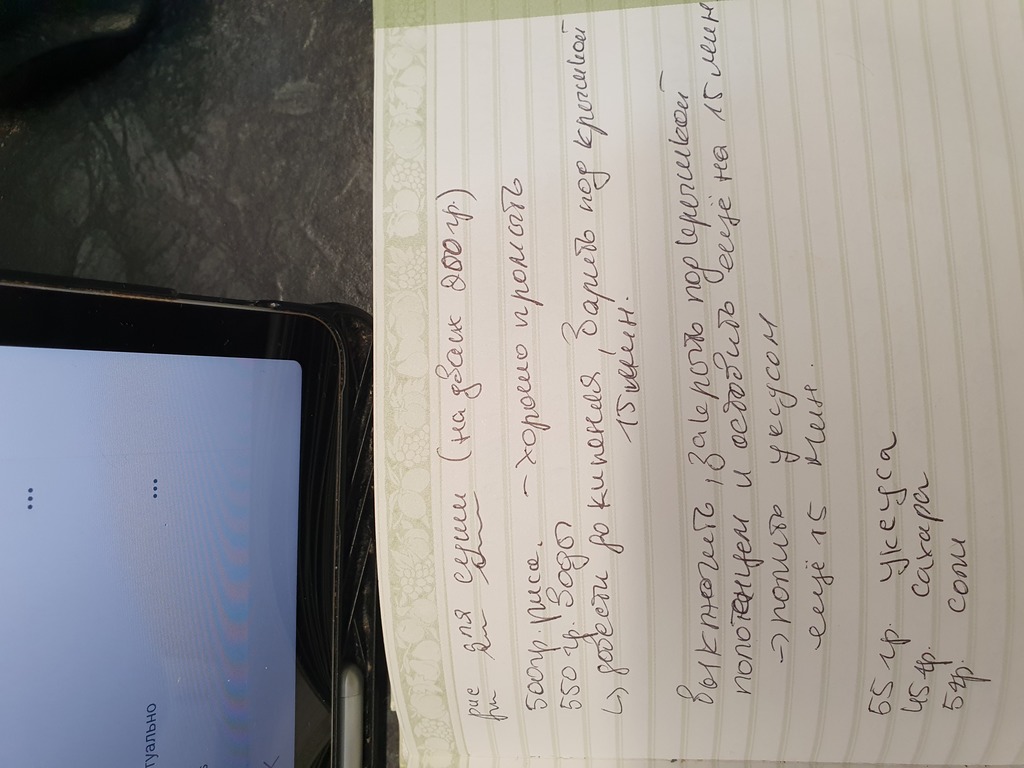 рис для суши (на зван 200гр.)
500гр. риса. - хорошо промыть
550 гр. воды
↳ довести до кипения, варить под крышкой
15 мин.
выключить, закрыть под крышкой
полотенцем и оставить ещё на 15 мин
→ полить уксусом
ещё 15 мин.
55 гр. уксуса
45 гр. сахара
5 гр. соли
туально